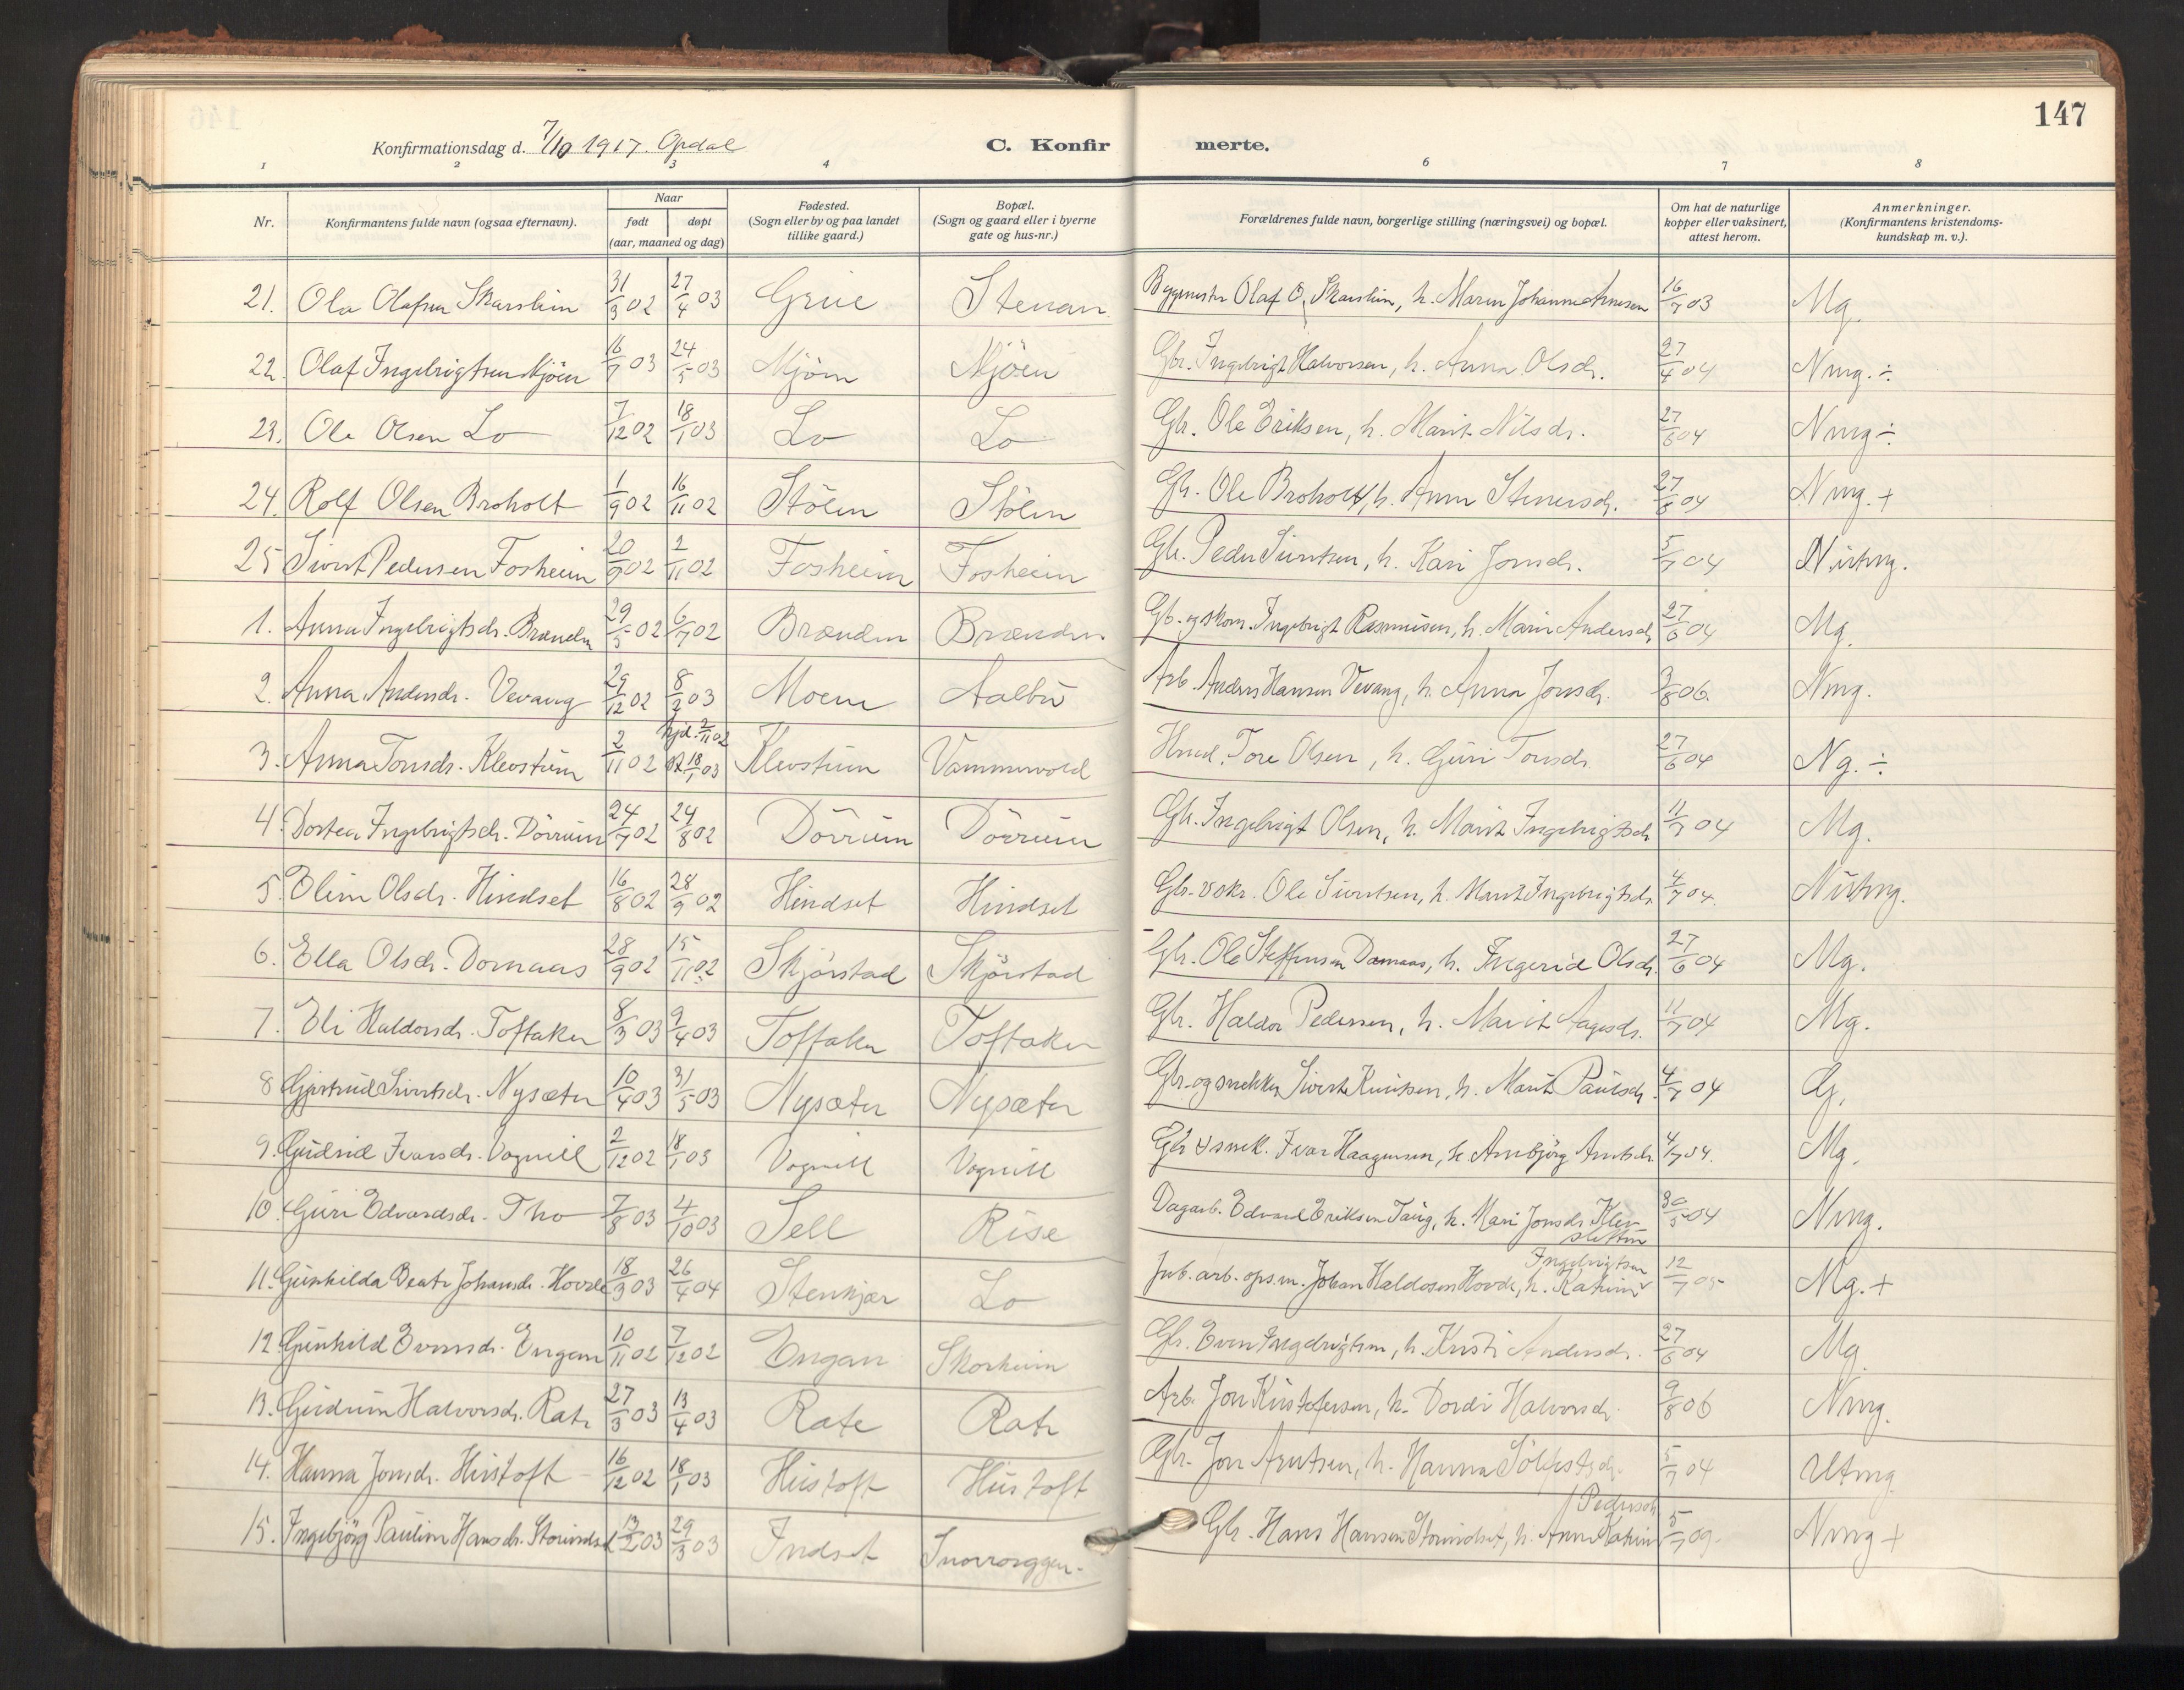 147
Konfirmationsdag d. 7/10 1917. Opdal
C. Konfirmerte.
1 2 3 4 6 7 8
Nr.
Konfirmantens fulde navn (ogsaa efternavn).
Naar
født døpt
(aar, maaned og dag)
Fødested.
(Sogn eller by og paa landet
tillike gaard.)
Bopæl.
(Sogn og gaard eller i byerne
gate og hus-nr.)
Forældrenes fulde navn, borgerlige stilling (næringsvei) og bopæl.
Om hat de naturlige
kopper eller vaksinert,
attest herom.
Anmerkninger.
(Konfirmantens kristendoms-
kundskap m. v.).
21. Ola Olafsen Skarsheim 31/3 02 27/4 03 Grue Stenan Byggmester Olaf O. Skarsheim, h. Maren Johanne Arnesen 16/7 03 Mg.
22. Olaf Ingebrigtsen Mjöen 16/7 03 24/5 03 Mjöen Mjöen Gbr. Ingebrigt Halvorsen, h. Anna Olsdr. 27/4 04 Nmg. ÷
23. Ole Olsen Lo 7/12 02 18/1 03 Lo Lo Gbr. Ole Eriksen, h. Marit Nilsdr. 27/6 04 Nmg ÷
24. Rolf Olsen Broholt 1/9 02 16/11 02 Stölen Stölen Gbr. Ole Broholt, h. Anne Stenersdr. 27/6 04 Nmg. +
25 Sivert Pedersen Fosheim 20/9 02 2/11 02 Fosheim Fosheim Gbr. Peder Sivertsen, h. Kari Jonsdr. 5/7 04 Nutmg.
1. Anna Ingebrigtsdr. Brænden 29/5 02 6/7 02 Brænden Brænden Gb. og skom. Ingebrigt Rasmusen, h. Marit Andersdr 27/6 04 Mg.
2. Anna Andersdr. Vevang 29/12 02 8/2 03 Moene Aalbu Arb. Anders Hansen Vevang, h. Anna Jonsdr. 3/8 06. Nmg.
3. Anna Toresdr. Klevstuen 2/11 02 hjd. 2/11 02 18/1 03 Klevstuen Vammervold Husmd. Tore Olsen, h. Guri Toresdr. 27/6 04 Ng. ÷
4. Dortea Ingebrigtsdr. Dörrum 24/7 02 24/8 02 Dörrum Dörrum Gbr. Ingebrigt Olsen, h. Marit Ingebrigtsdr. 11/7 04 Mg.
5. Elin Olsdr. Hindset 16/8 02 28/9 02 Hindset Hindset Gbr. Ole Sivertsen, h. Marit Ingebrigtsdr. 4/7 04. Nutmg.
6. Ella Olsdr. Dornaas 28/9 02 15/11 02 Skjörstad Skjörstad Gbr. Ole Steffensen Dornaas, h. Ingerid Olsdr. 27/6 04 Mg.
7. Eli Haldorsdr. Toftaker 8/3 03 9/4 03 Toftaker Toftaker Gbr. Haldor Pedersen, h. Marit Aagesdr. 11/7 04 Mg.
8 Gjertrud Sivertsdr. Nysæter 10/4 03 31/5 03 Nysæter Nysæter Gbr. og snekker Sivert Knutsen, h. Marit Paulsdr. 4/7 04 G.
9. Gudrid Ivarsdr. Vognill 2/12 02 18/1 03 Vognill Vognill Gbr & snek. Ivar Haagensen, h. Arnbjörg Arntsdr. 4/7 04. Mg.
10. Guri Edvardsdr. Tho 7/8 03 4/10 03 Sell Rise Dagarb. Edvard Eriksen Taug, h. Mari Jonsdr. Klev-
sletten 30/5 04 Nmg.
11. Gunhilda Beate Johansdr. Hovde 18/3 03 26/4 04 Stenkjær Lo Jnb. arb. ops.m. Johan Haldosen Hovde, h. Katrine
Ingebrigtsen 12/7 05 Mg. +
12. Gunhild Evensdr. Engan 10/11 02 7/12 02 Engan Skorheim Gbr. Even Ingebrigtsen, h. Kristi Andersdr. 27/6 04 Mg.
13. Gudrun Halvorsdr. Rate 27/3 03 13/4 03 Rate Rate Arb. Jon Kristofersen, h. Dordi Halvorsdr. 9/8 06 Nmg.
14. Hanna Jonsdr. Hustoft 16/12 02 18/1 03 Hustoft Hustoft Gbr. Jon Arntsen, h. Hanna 5/7 04 Utmg.
15. Ingebjörg Pauline Hansdr. Storindset 13/2 03 29/3 03 Indset Gbr. Hans Hansen Storindset, h. Anne Katrine
Pedersdr. 5/7 09. Nmg +